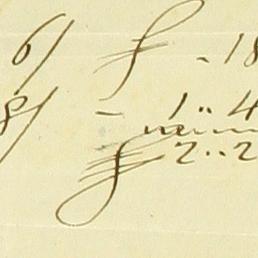 6/ £ - 18
8/ - 1 " 4
£ 2 " 2